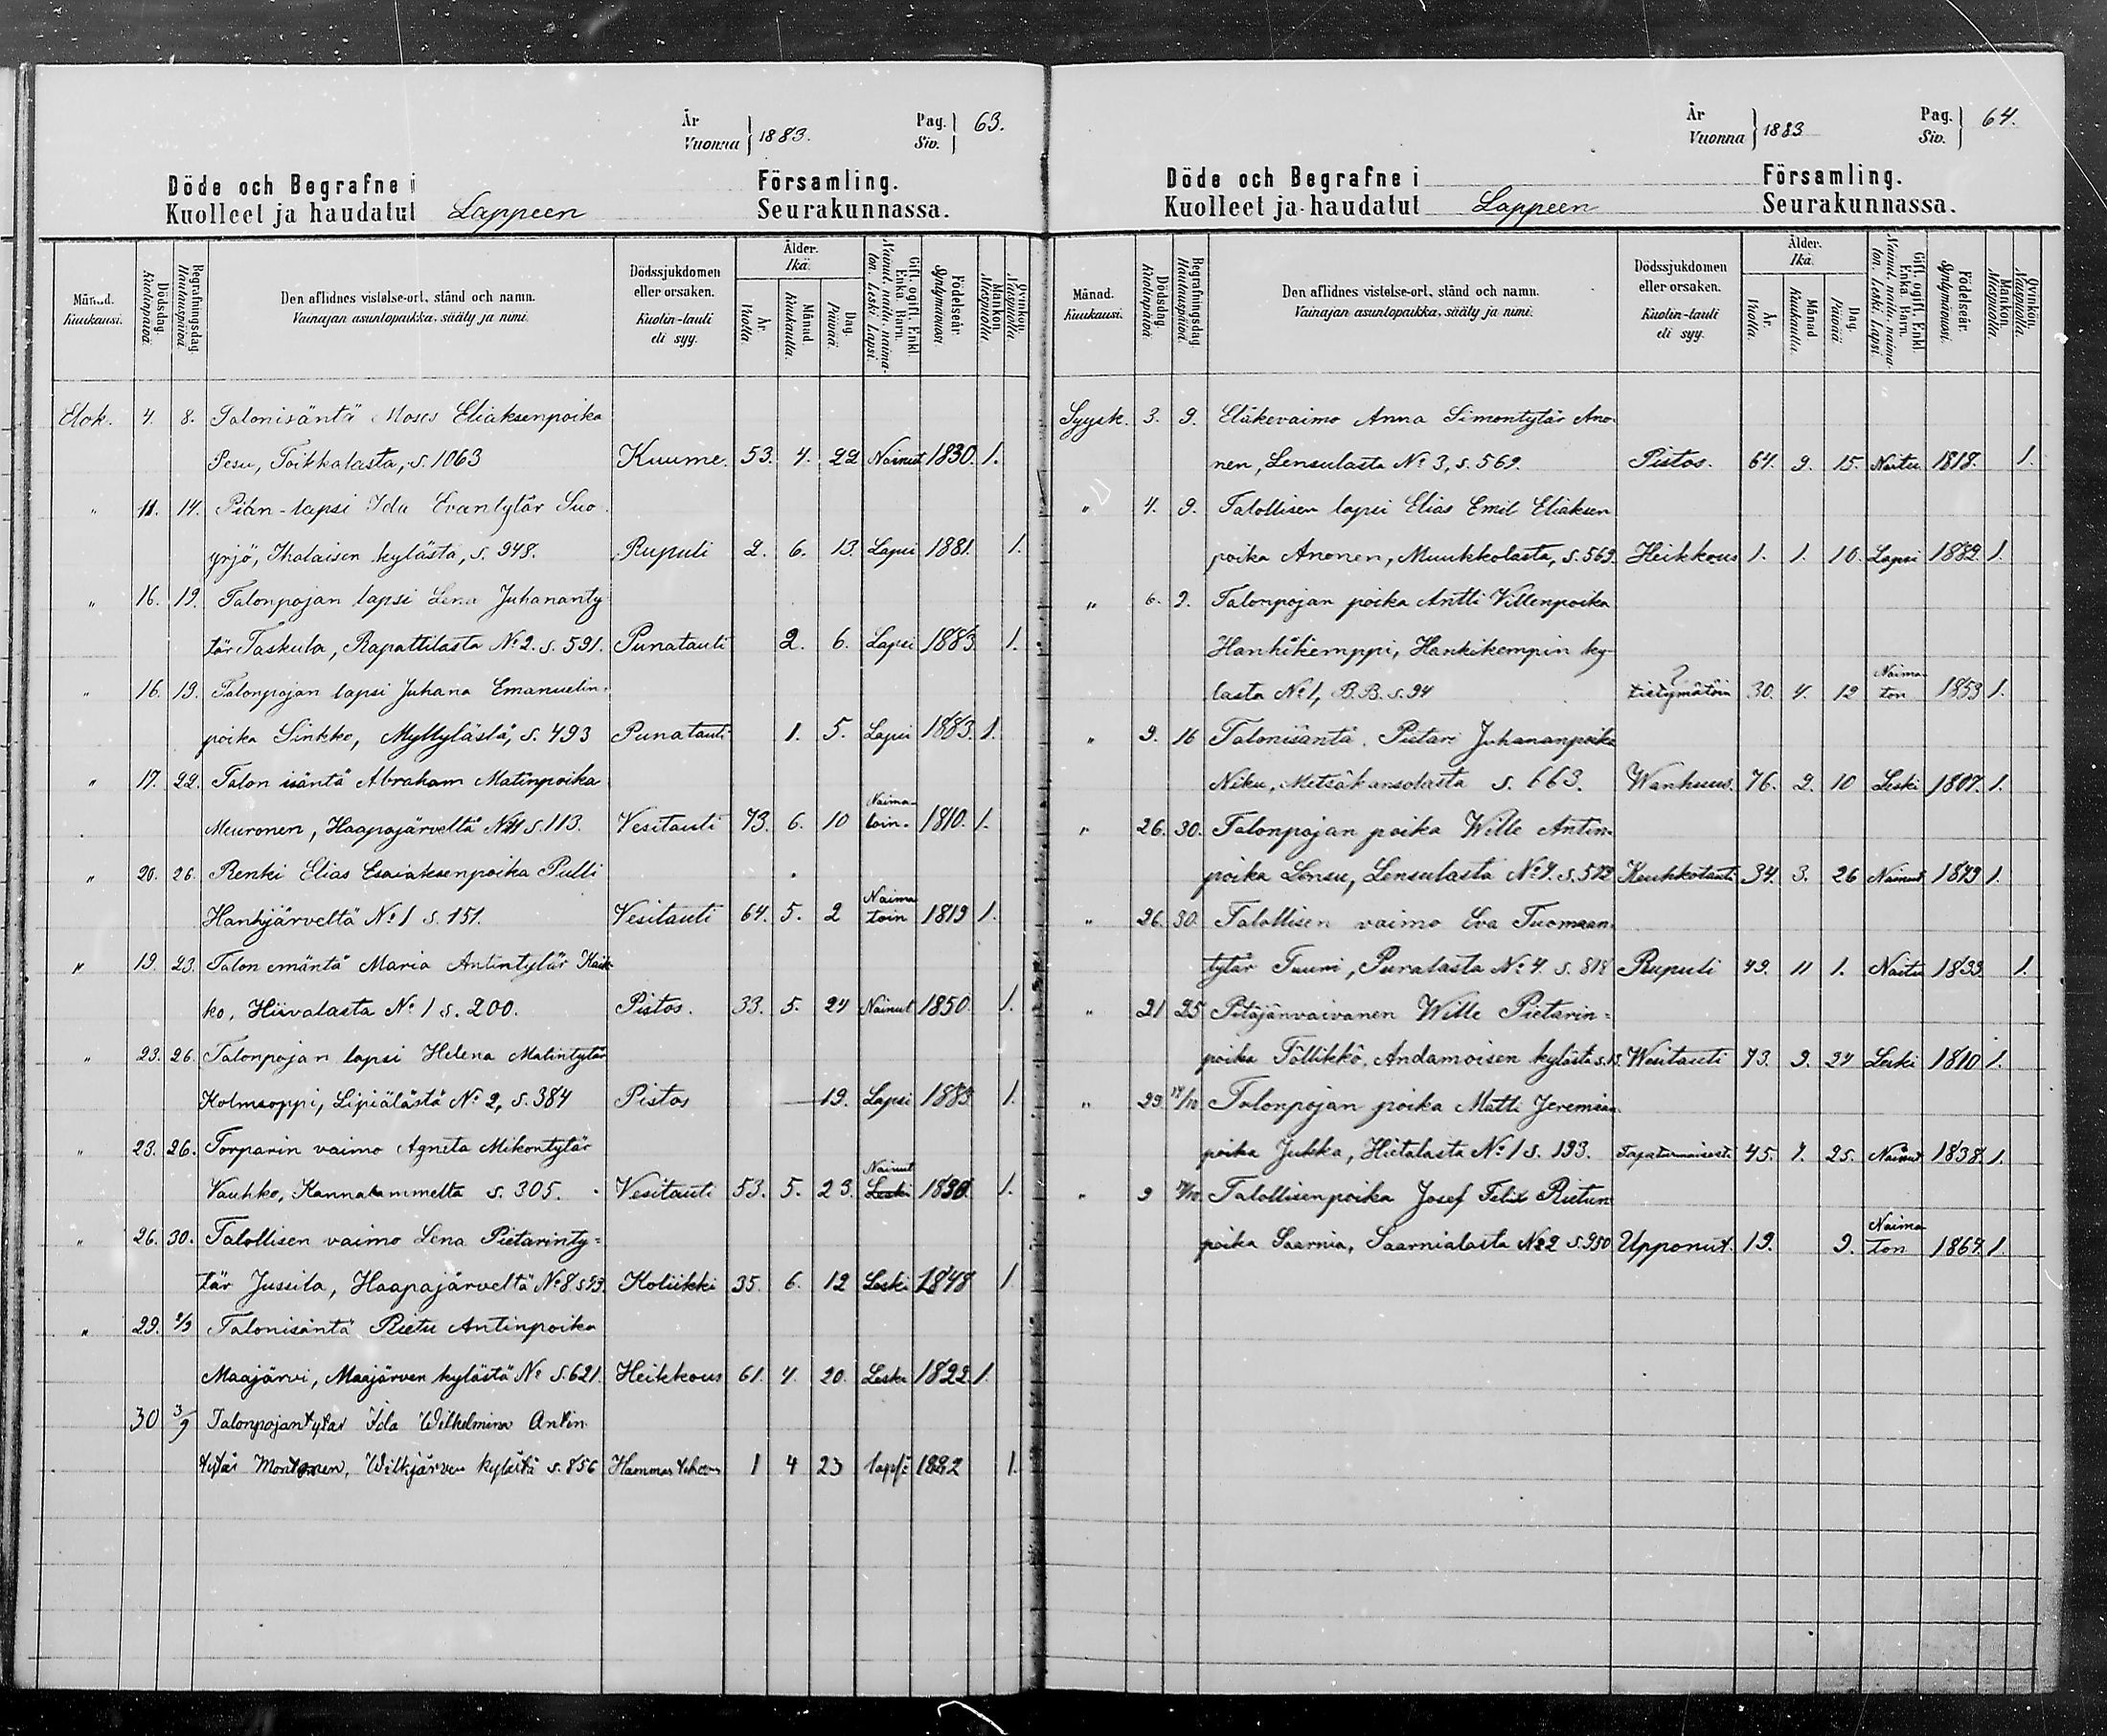 År
Vuonna 1883.
Pag. Siv. 63.
Döde och Begrafne i Församling.
Kuolleet ja haudatut Lappeen Seurakunnassa.
Månad. Kuukausi.
Dödsdag. Kuolinpäivä.
Begrafningsdag. Hautauspäivä.
Den aflidnes vistelse-ort, stånd och namn.
Vainajan asuntopaikka, sääty ja nimi.
Dödssjukdomen eller orsaken.
Kuolin-tauti eli syy.
Ålder. Ikä.
År. Vuotta.
Månad. Kuukautta.
Dag. Päivää.
Gift, ogift, Enkl. Enka. Barn.
Nainut, naitu, naimaton. Leski. Lapsi.
Födelseår. Syntymävuosi.
Mankön. Miespuolia.
Qvinkön. Vaispuolia.
Elok. 4. 8. Talonisäntä Moses Eliaksenpoika
Pesu, Toikkalasta, s. 1063 Kuume. 53. 4. 22 Nainut 1830. 1.
" 11. 14. Piian-lapsi Ida Evantytär Suo
yrjö, Ihalaisen kylästä, s. 948. Rupuli 2. 6. 13. Lapsi 1881. 1.
" 16. 19. Talonpojan lapsi Lena Juhananty
tär Taskula, Rapattilasta No 2. s. 591. Punatauti 2. 6. Lapsi 1883 1.
" 16. 19. Talonpojan lapsi Juhana Emanuelin-
poika Sinkko, Myllylästä, s. 493 Punatauti 1. 5. Lapsi 1883. 1.
" 17. 22. Talon isäntä Abraham Matinpoika
Meuronen, Haapajärveltä No 11 s. 113. Vesitauti 73. 6. 10 Naima-toin. 1810. 1.
" 20. 26. Renki Elias Esaiaksenpoika Pulli
Hanhjärveltä No 1 s. 151. Vesitauti 64. 5. 2 Naimatoin 1819 1.
" 19. 23. Talon emäntä Maria Antintytär Kaik
ko, Hiivalasta No 1 s. 200. Pistos. 33. 5. 24 Nainut 1850. 1.
" 23. 26. Talonpojan lapsi Helena Matintytär
Kolmsoppi, Lipiälästä No 2, s. 384 Pistos 19. Lapsi 1883 1.
" 23. 26. Torparin vaimo Agneta Mikontytär
Vauhko, Kannatammelta s. 305. Vesitauti 53. 5. 23. Nainut Leski 1830. 1.
" 26. 30. Talollisen vaimo Lena Pietarinty=
tär Jussila, Haapajärveltä No 8. s 93. Koliikki 35. 6. 12 Leski 1848 1
" 29. 2/9 Talonisäntä Rietu Antinpoika
Maajärvi, Maajärven kylästä No s. 621. Heikkous 61. 4. 20. Leski 1822. 1.
30 3/9 Talonpojantytar Ida Wilhelmina Antin
tytär Montonen, Wilkjärven kylästä s. 856 1 4 23 lapsi 1882 1.
År
Vuonna 1883
Pag. Siv. 64.
Döde och Begrafne i Församling.
Kuolleet ja haudatut Lappeen Seurakunnassa.
Månad. Kuukausi.
Dödsdag. Kuolinpäivä.
Begrafningsdag. Hautauspäivä.
Den aflidnes vistelse-ort, stånd och namn.
Vainajan asuntopaikka, sääty ja nimi.
Dödssjukdomen eller orsaken.
Kuolin-tauti eli syy.
Ålder. Ikä.
År. Vuotta.
Månad. Kuukautta.
Dag. Päivää.
Gift, ogift, Enkl. Enka. Barn.
Nainut, naitu, naimaton. Leski. Lapsi.
Födelseår. Syntymävuosi.
Mankön. Miespuolia.
Qvinkön. Vaispuolia.
Syysk. 3. 9. Eläkevaimo Anna Simontytär Ano-
nen, Lensulasta No 3, s. 569. Pistos. 64. 9. 15. Naitu 1818. 1.
" 4. 9. Talollisen lapsi Elias Emil Eliaksen
poika Anonen, Muukkolasta, s. 569. Heikkous 1. 1. 10. Lapsi 1882. 1.
" 6. 9. Talonpojan poika Antti Villenpoika
Hanhikemppi, Hankikempin ky-
lasta No 1, B.B. s. 94 ? tietymätöin 30. 4. 12 Naimaton 1853 1.
" 9. 16 Talonisäntä Pietari Juhananpoika
Niku, Metsäkansolasta s. 663. Wanhuus. 76. 2. 10 Leski 1807. 1.
" 26. 30. Talonpojan poika Wille Antin-
poika Lensu, Lensulasta No 4. s. 572 Keuhkotauti 34. 3. 26 Nainut 1849 1.
" 26. 30. Talollisen vaimo Eva Tuomaan-
tytär Tuuri, Puralasta No 4. s. 818 Rupuli 49. 11 1. Naitu 1833 1.
" 21 25 Pitäjänvaivanen Wille Pietarin=
poika Töllikkö, Andamoisen kylästä s. 13. Wesitauti 73. 9. 24 Leski 1810 1.
" 29. 14/10 Talonpojan poika Matti Jeremian
poika Jukka, Hietalasta No 1 s. 193. Tapaturmaisesti 45. 7. 25. Nainut 1838. 1.
" 9 Talollisenpoika Josef Felix Rietun
poika Saarnia, Saarnialasta No 2 s. 950 Upponut. 19. 9. Naimaton 1864. 1.